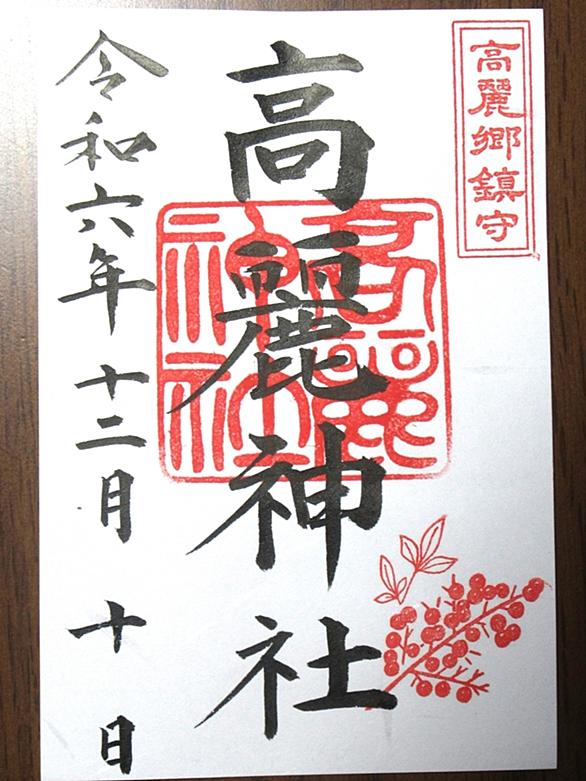 高麗郷鎮守
高麗神社
高麗神社
令和六年十二月十日